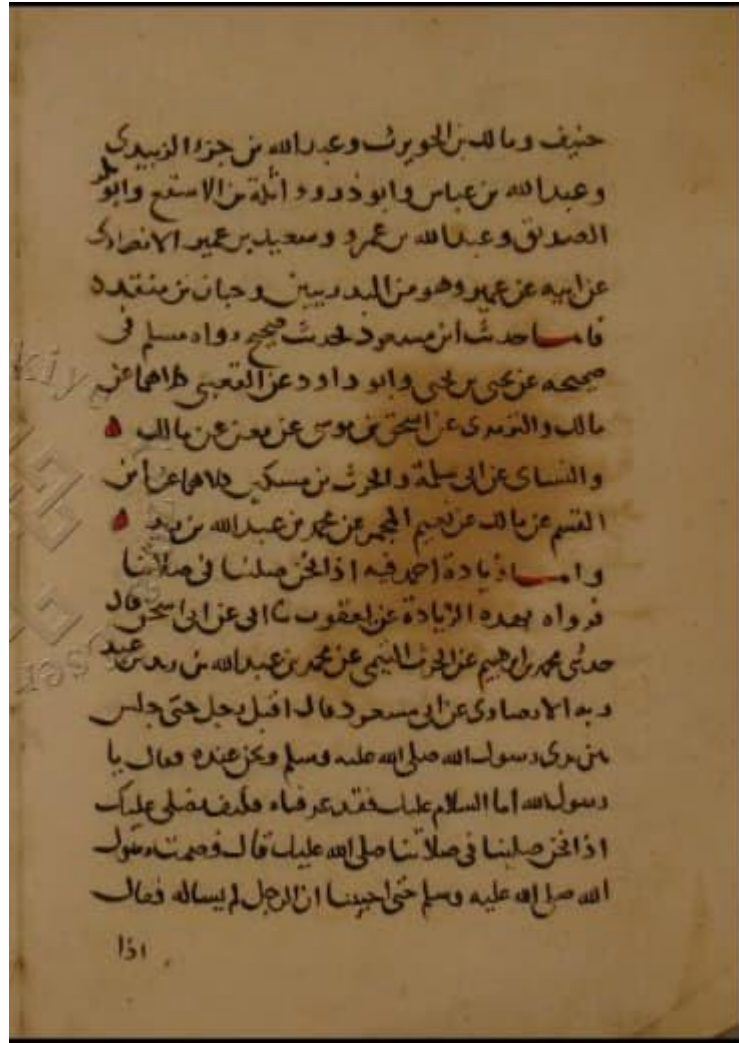 حنيف ومالك بن الحويرث وعبد الله بن جزء الزبيدى
وعبد الله بن عباس وابو ذر وواثلة بن الاسقع وابو بكر
الصديق وعبد الله بن عمرو وسعيد بن عمير الانصارى
عن ابيه عن عمير وهو من البدريين وحبان بن منقذ
فاما حديث ابن مسعود فحديث صحيح رواه مسلم فى
صحيحه عن يحيى بن يحيى وابو داود عن القعنبى كلاهما عن
مالك والترمذى عن اسحق بن موسى عن معن عن مالك
والنساى عن ابى سلمة والحرث بن مسكين كلاهما عن ابن
القسم عن مالك عن نعيم المجمر عن محمد بن عبد الله بن زيد
واما زيادة احمد فيه اذا نحن صلينا فى صلاتنا
فرواه بهذه الزيادة عن يعقوب ثنا ابى عن ابن اسحق قال
حدثنى محمد بن ابرهيم بن الحرث التيمى عن محمد بن عبد الله بن زيد بن عبد
ربه الانصارى عن ابى مسعود قال اقبل رجل حتى جلس
بين يدى رسول الله صلى الله عليه وسلم ونحن عنده فقال يا
رسول الله اما السلام عليك فقد عرفناه فكيف نصلى عليك
اذا نحن صلينا فى صلاتنا صلى الله عليك قال فصمت رسول
الله صلى الله عليه وسلم حتى احببنا ان الرجل لم يساله فقال
اذا